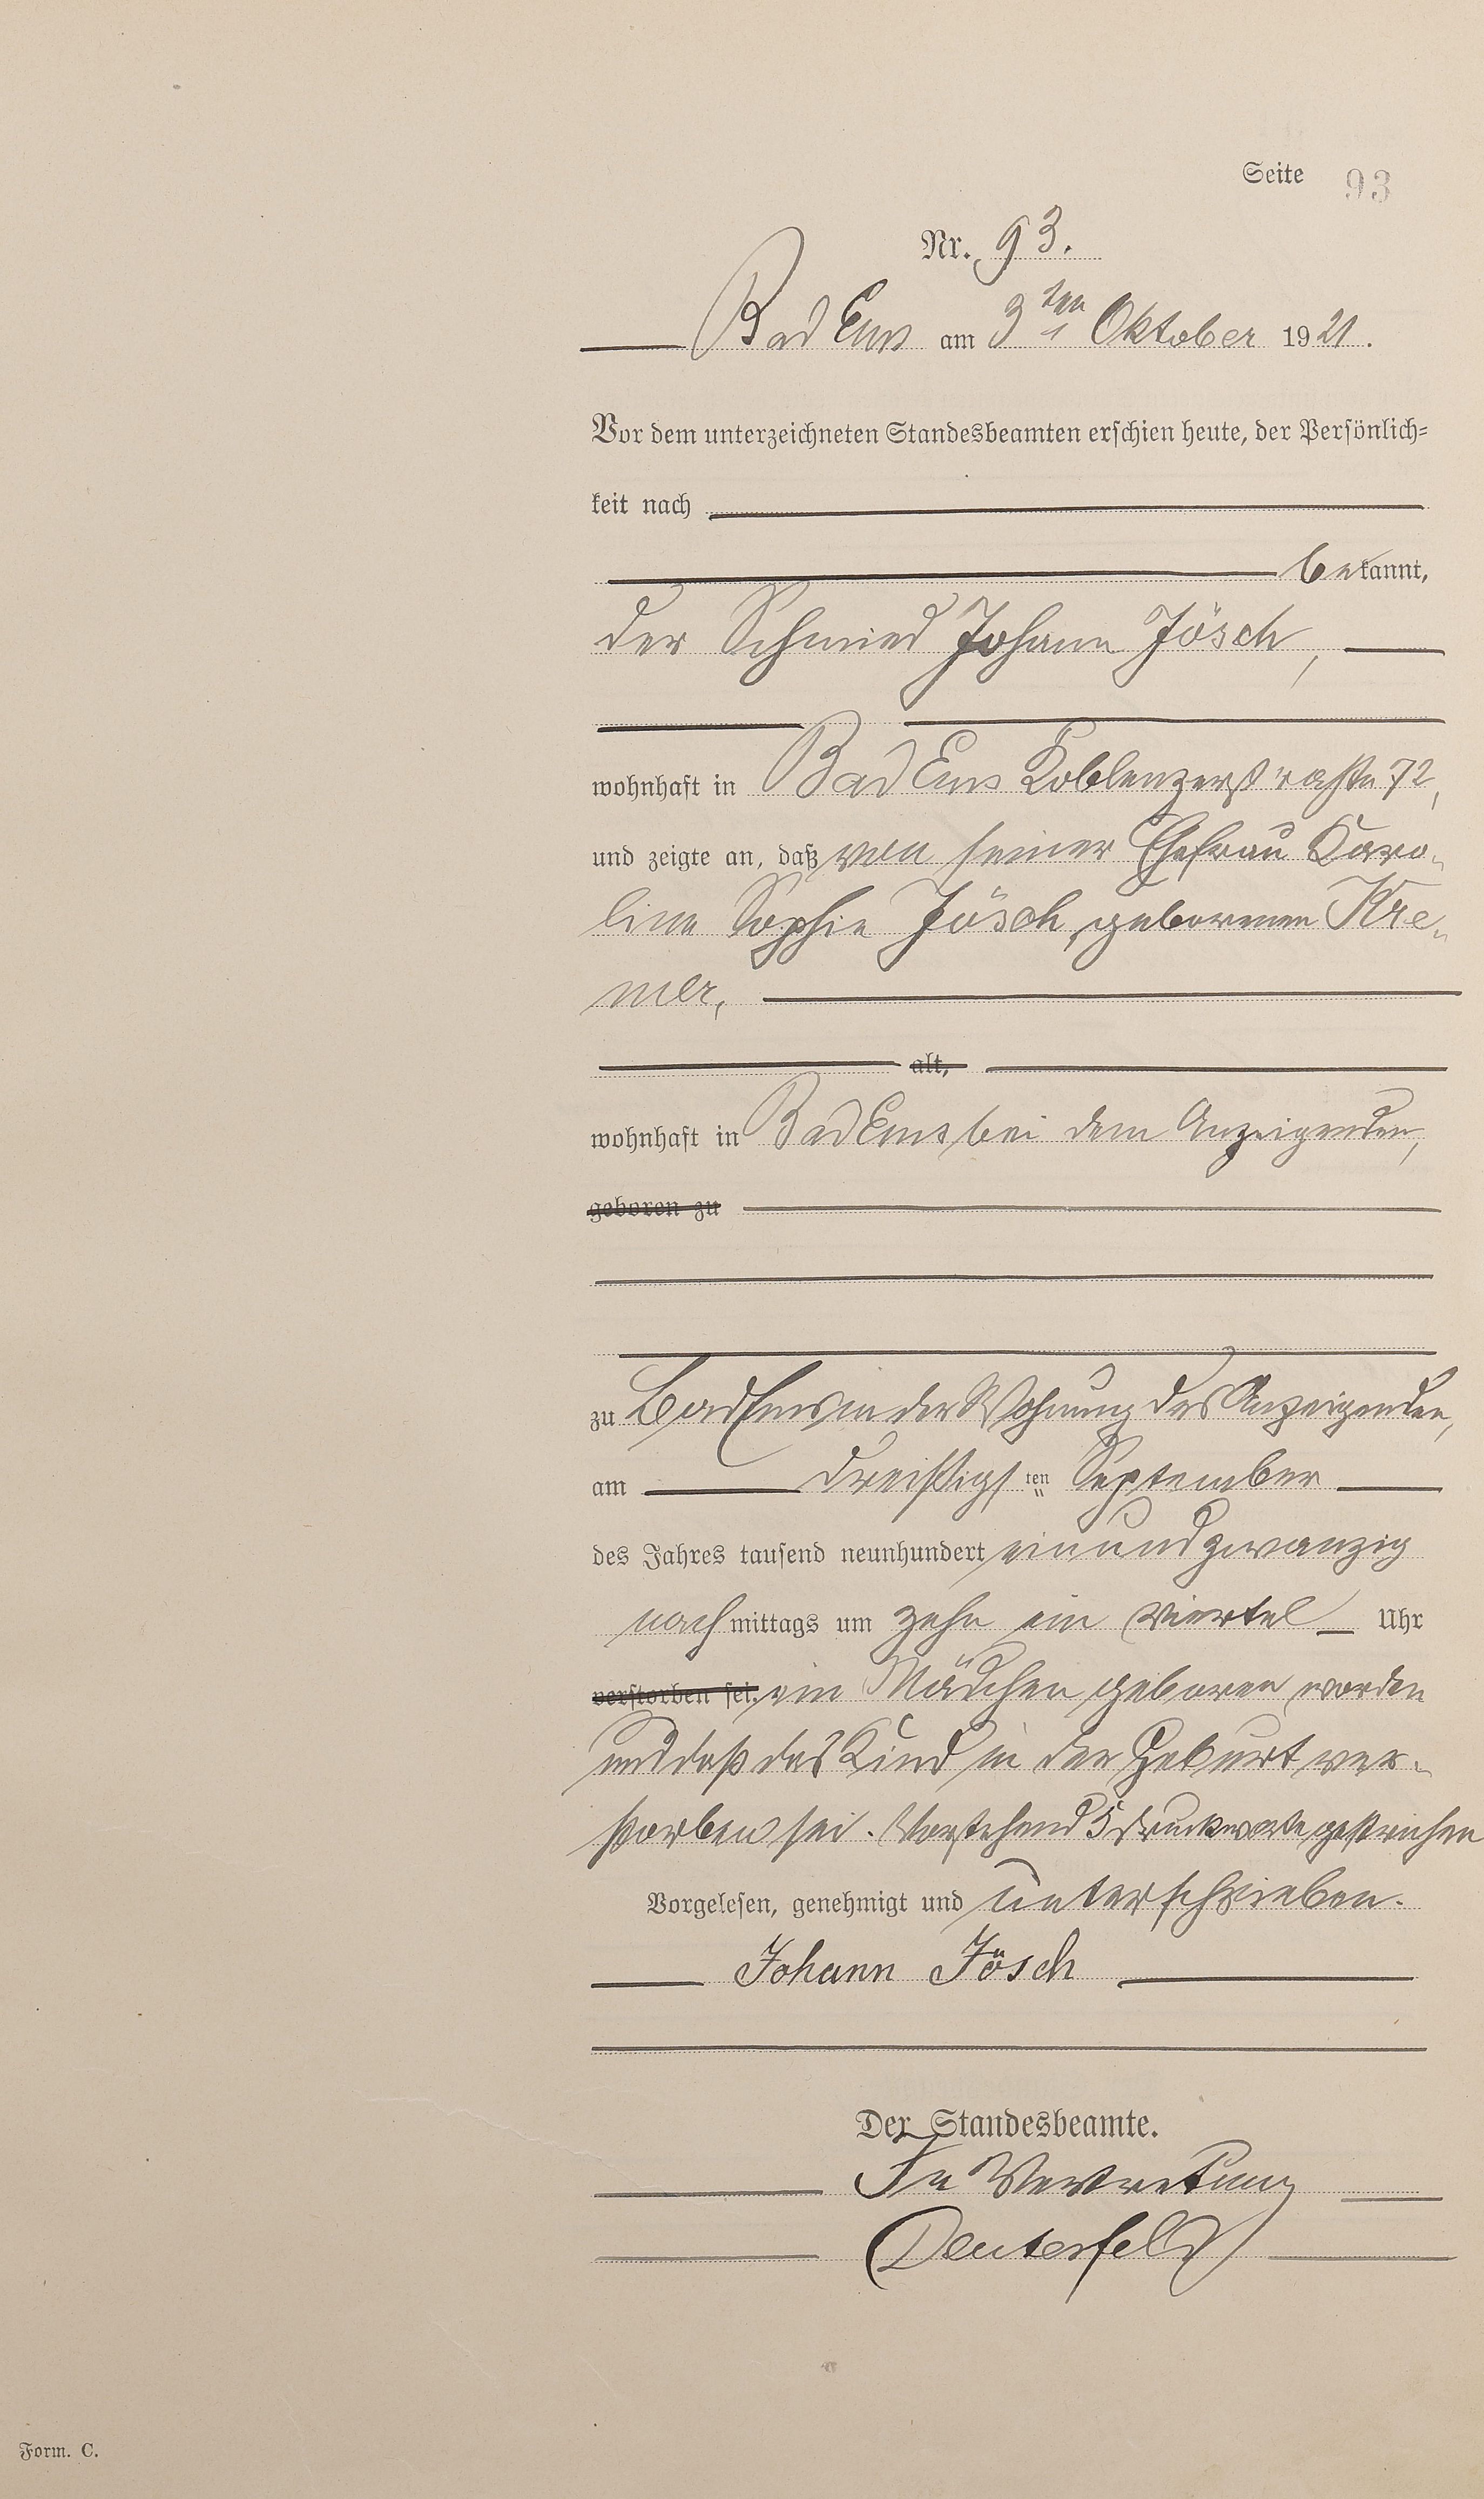 Seite 93
Nr. 93.
Bad Ems am 3ten Oktober 1921.
Vor dem unterzeichneten Standesbeamten erschien heute, der Persönlich=
keit nach
bekannt,
der Schmied Johann Jösch,
wohnhaft in Bad Ems Koblenzerstraße 72,
und zeigte an, daß von seiner Ehefrau Karo-
line Sophie Jösch, geborenen Kre-
mer,
alt,
wohnhaft in Bad Ems bei dem Anzeigenden,
geboren zu
zu Bad Ems in der Wohnung des Anzeigenden,
am dreißigsten September
des Jahres tausend neunhundert einundzwanzig
nachmittags um zehn ein viertel Uhr
verstorben sei. ein Mädchen geboren worden
und daß das Kind in der Geburt ver-
storben sei. Vorstehend 5 Druckworte gestrichen
Vorgelesen, genehmigt und unterschrieben.
Johann Jösch
Der Standesbeamte.
In Vertretung
Deutesfeld
Form. C.